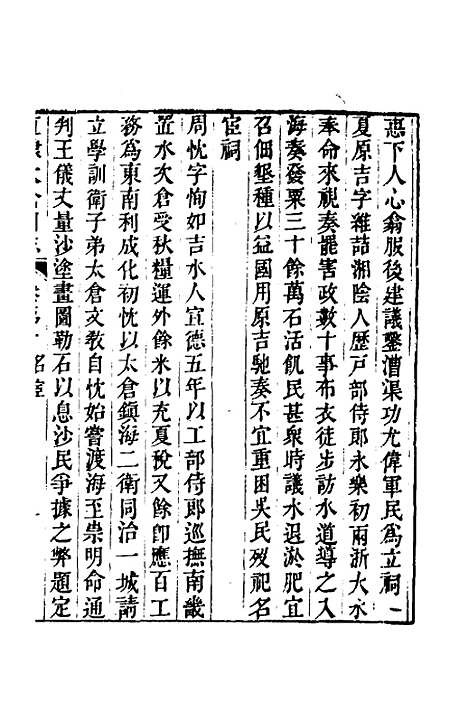 惠下人心翕服後建議鑿漕渠功尤偉軍民為立祠
夏原吉字維喆湘陰人歷戸部侍郎永樂初兩浙大水
奉命來視奏罷害政數十事布衣徒步訪水道導之入
海奏發粟三十餘萬石活飢民甚衆時議水退淤肥宜
召佃墾種以益國用原吉馳奏不宜重困吳民歿祀名
宦祠
周忱字恂如吉水人宣德五年以工部侍郎巡撫南畿
置水次倉受秋糧運外餘米以充夏稅又餘卽應百工
務為東南利成化初忱以太倉鎮海二衛同治一城請
立學訓衛子弟太倉文教自忱始嘗渡海至崇明命通
判王儀丈量沙塗畫圖勒石以息沙民爭據之弊題定
直隸太倉州志 名宦